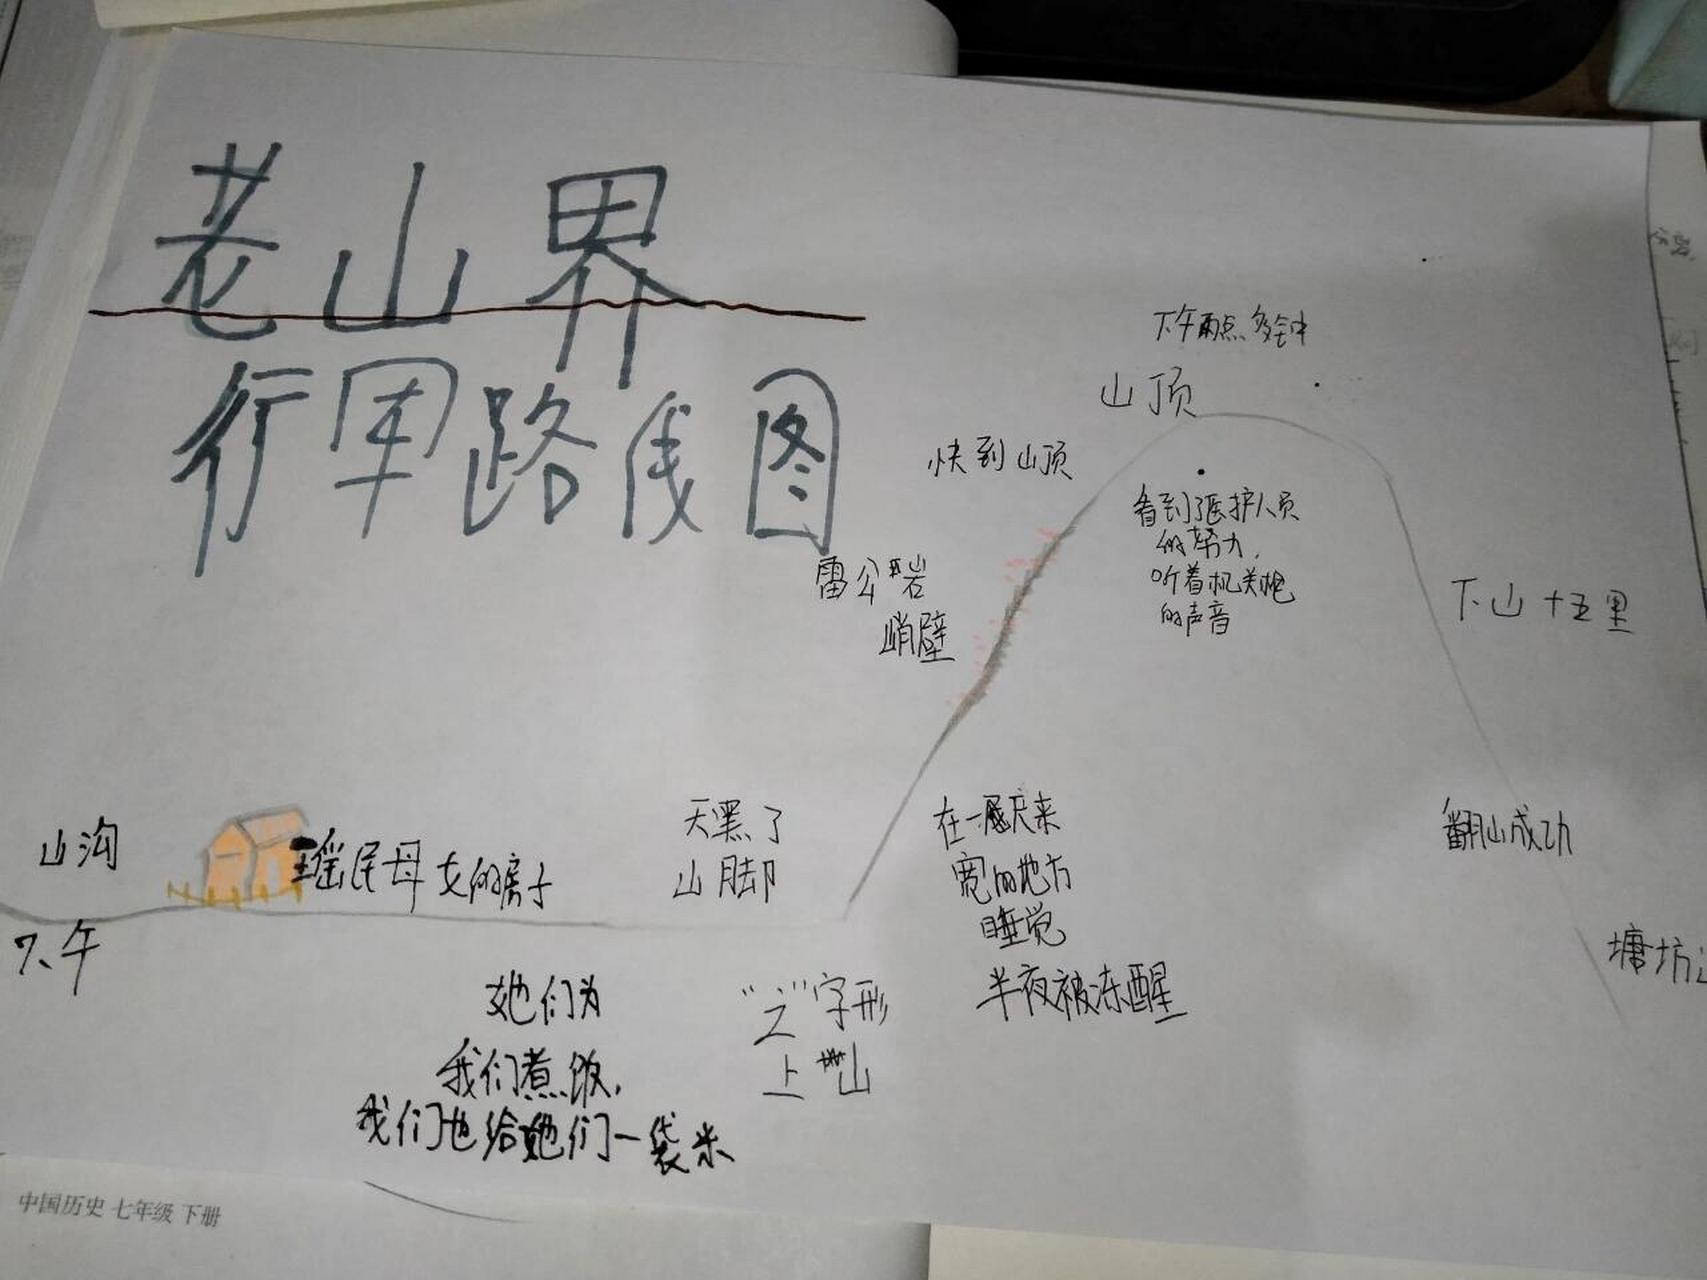 老山界
行军路线图
下午两点多钟
山顶
快到山顶
看到了医护人员
的努力,
听着机关枪
的声音
雷公岩
峭壁
下山十五里
山沟
瑶民母女的房子
天黑了
山脚
在一尺来
宽的地方
睡觉
半夜被冻醒
翻山成功
下午
塘坊
她们为
我们煮饭,
我们也给她们一袋米
“之”字形
上山
中国历史 七年级 下册